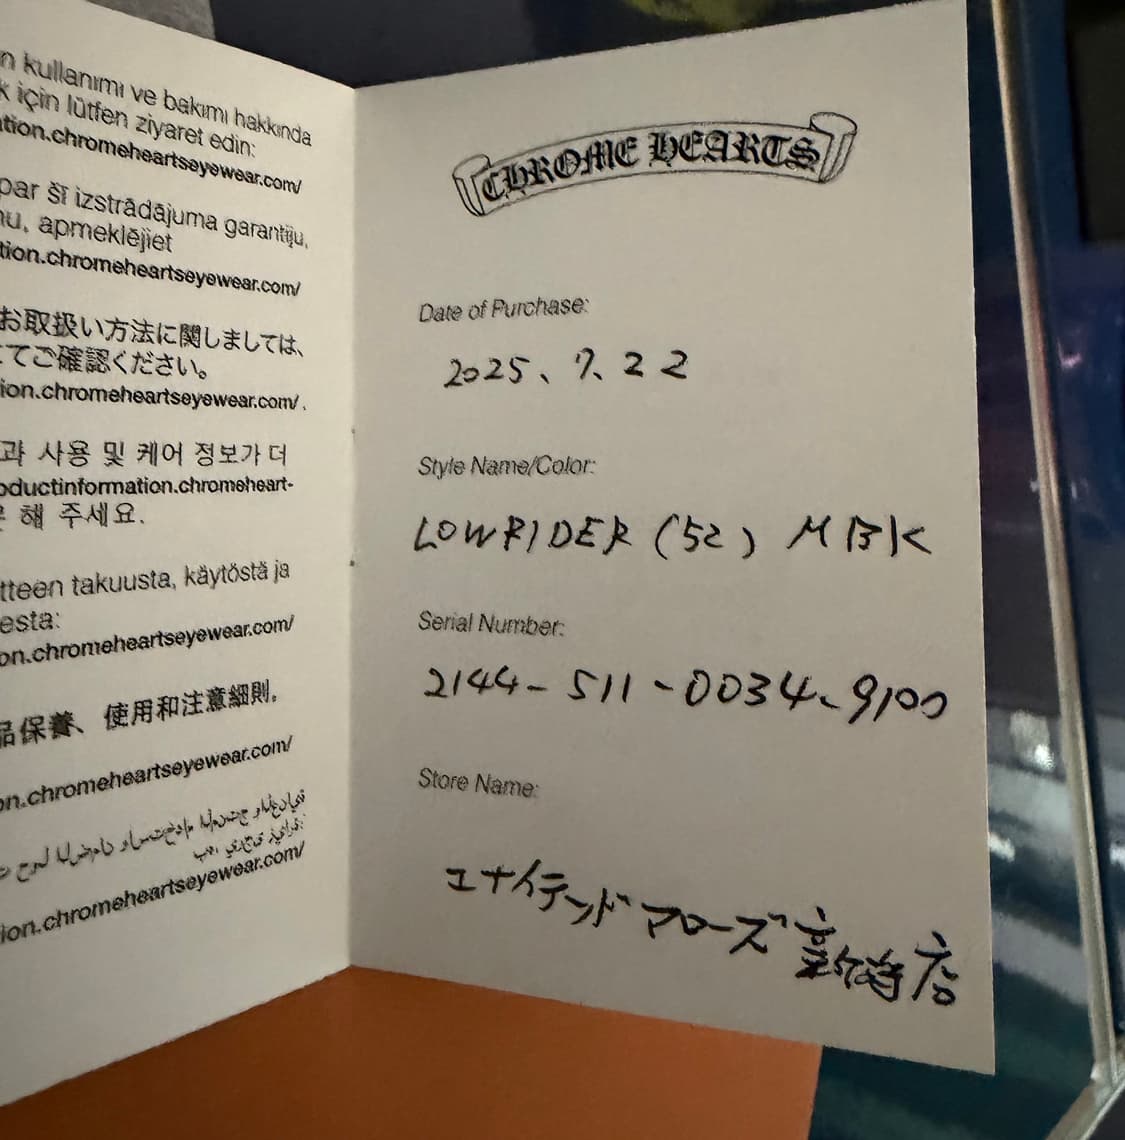 n kullanımı ve bakımı hakkında
k için lütfen ziyaret edin:
ation.chromeheartseyewear.com/
par šī izstrādājuma garantiju,
nu, apmeklējiet
tion.chromeheartseyewear.com/
お取扱い方法に関しましては、
てご確認ください。
ion.chromeheartseyewear.com/.
과 사용 및 케어 정보가 더
oductinformation.chromeheart-
해 주세요.
tteen takuusta, käytöstä ja
esta:
on.chromeheartseyewear.com/
品保養、使用和注意細則。
on.chromeheartseyewear.com/
حول الضمان واستخدام المنتج والعناية
به، يرجى زيارة:
ion.chromeheartseyewear.com/
CHROME HEARTS
Date of Purchase:
2025、7、22
Style Name/Color:
LOWRIDER (52) MBK
Serial Number:
2144-511-0034-9100
Store Name:
ユナイテッドアローズ 店